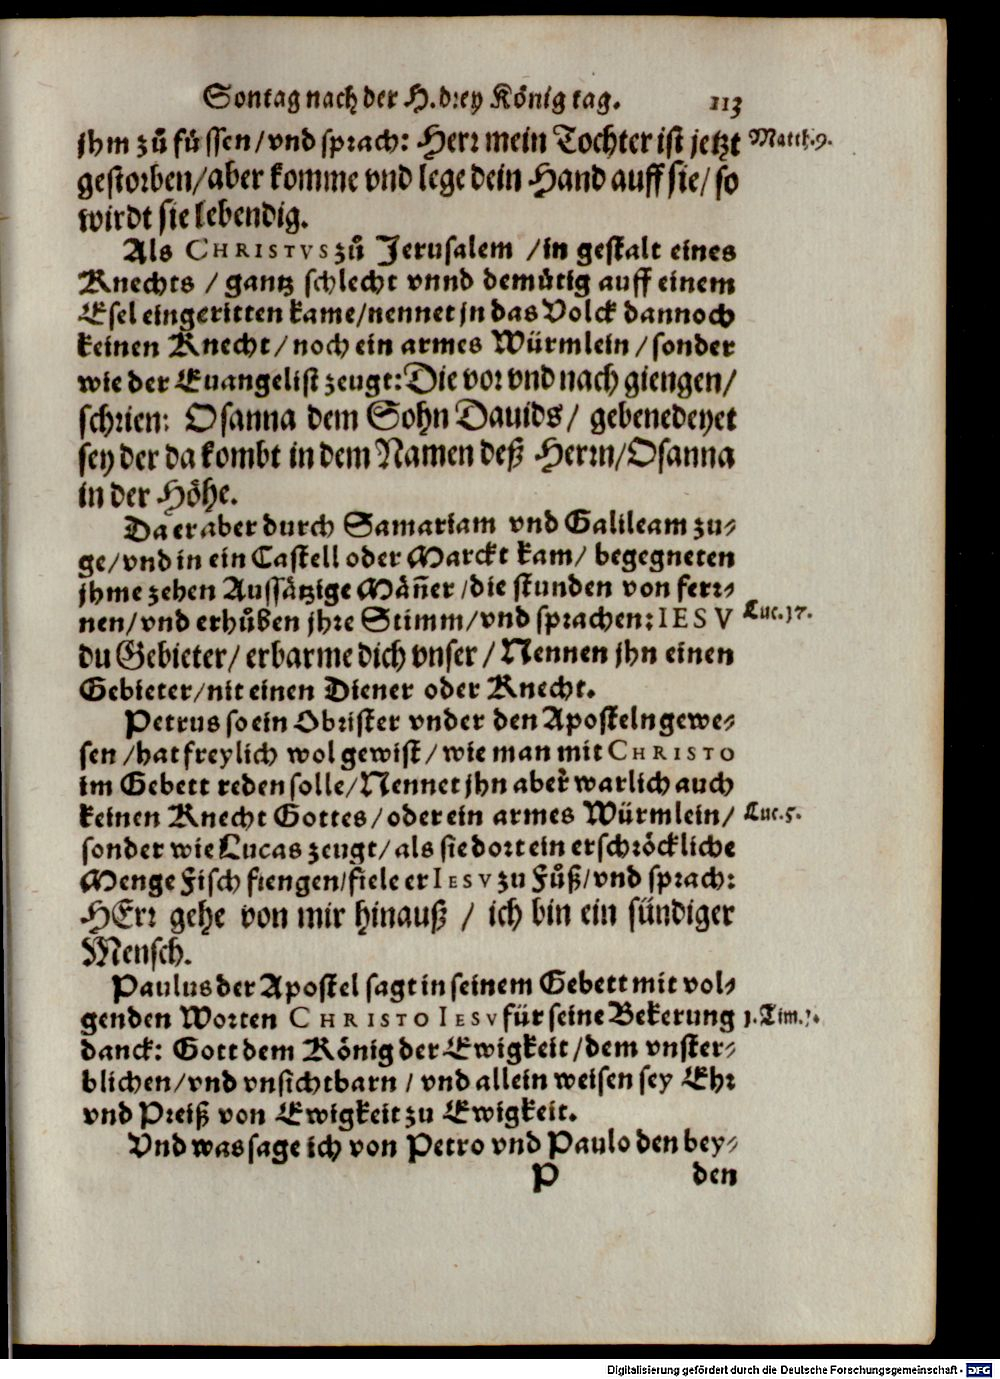 Sontag nach der H. drey König tag. 113
jhm zů füssen/vnd sprach: Herr mein Tochter ist jetzt Matth.9.
gestorben/aber komme vnd lege dein Hand auff sie/so
wirdt sie lebendig.
Als CHRISTVS zů Jerusalem /in gestalt eines
Knechts / gantz schlecht vnnd demütig auff einem
Esel eingeritten kame/nennet jn das Volck dannoch
keinen Knecht/noch ein armes Würmlein/sonder
wie der Euangelist zeugt: Die vor vnd nach giengen/
schrien: Osanna dem Sohn Dauids/ gebenedeyet
sey der da kombt in dem Namen deß Herrn/Osanna
in der Höhe.
Da er aber durch Samariam vnd Galileam zu-
ge/vnd in ein Castell oder Marckt kam/ begegneten
jhme zehen Aussätzige Mañer/die stunden von fer-
nen/vnd erhůben jhre Stimm/vnd sprachen: IESV Luc.17.
du Gebieter/ erbarme dich vnser/Nennen jhn einen
Gebieter/nit einen Diener oder Knecht.
Petrus so ein Obrister vnder den Aposteln gewe-
sen/hat freylich wol gewist/wie man mit CHRISTO
im Gebett reden solle/Nennet jhn aber warlich auch
keinen Knecht Gottes/oder ein armes Würmlein/ Luc.5.
sonder wie Lucas zeugt/als sie dort ein erschröckliche
Menge Fisch fiengen/fiele er IESV zu Fůß/vnd sprach:
HErr gehe von mir hinauß / ich bin ein sündiger
Mensch.
Paulus der Apostel sagt in seinem Gebett mit vol-
genden Worten CHRISTO IESV für seine Bekerung 1.Tim.1.
danck: Gott dem König der Ewigkeit/dem vnster-
blichen/vnd vnsichtbarn/vnd allein weisen sey Ehr
vnd Preiß von Ewigkeit zu Ewigkeit.
Vnd was sage ich von Petro vnd Paulo den bey-
P den
Digitalisierung gefördert durch die Deutsche Forschungsgemeinschaft - DFG